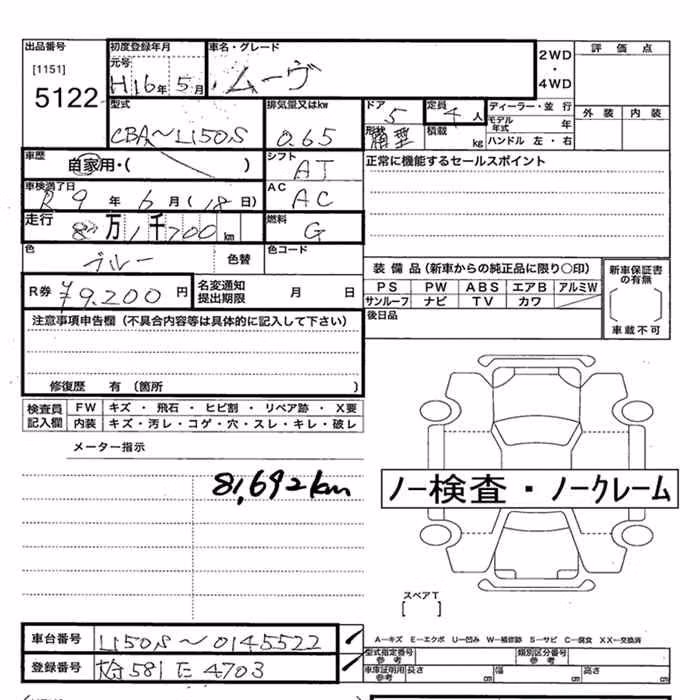 出品番号
[1151]
5122
初度登録年月
元号
H16年5月
車名・グレード
ムーヴ
2WD
・
4WD
評価点
外装 内装
型式
CBA～L150S
排気量又はkw
0.65
ドア
5
定員
4人
形状
積載
kg
ディーラー・並行
モデル年式 年
ハンドル 左・右
車歴
自家用・( )
シフト
AT
正常に機能するセールスポイント
車検満了日
R9年6月(18日)
AC
AC
走行
8万1千700km
燃料
G
色
ブルー
色替
色コード
装備品(新車からの純正品に限り〇印)
PS PW ABS エアB アルミW
サンルーフ ナビ TV カワ
新車保証書の有無
車載不可
R券 ¥9,200円
名変通知
提出期限 月 日
後日品
注意事項申告欄(不具合内容等は具体的に記入して下さい)
修復歴 有〔箇所 〕
検査員
記入欄
FW キズ・飛石・ヒビ割・リペア跡・X要
内装 キズ・汚レ・コゲ・穴・スレ・キレ・破レ
メーター指示
81,692km
ノー検査・ノークレーム
スペアT
[ ]
車台番号 L150S～0145522
登録番号 581 4703
A－キズ E－エクボ U－凹み W－補修跡 S－サビ C－腐食 XX－交換済
型式指定番号
参考
類別区分番号
参考
車庫証明
参考
長さ cm 幅 cm 高さ cm